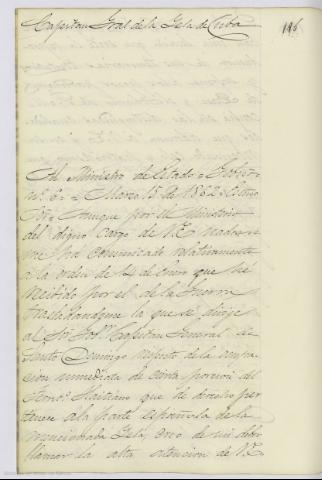 Capitan Gral de la Isla de Cuba
196
Al Ministro de Estado
nº 6 = Marzo 15 de 1862 = Exmo
Sor = Aunque por el Ministerio
del digno cargo de V.E. nada se
me ha comunicado relativamente
a la orden de 14 de Enero que he
recibido por el de la Guerra
trasladandome la que se dirije
al Sor Gobr Capitan General de
Santo Domingo respecto de la ocupa
cion inmediata de cierta porcion del
Terrno Haitiano que de derecho per
tenece a la parte Española de la
mencionada Isla, creo de mi deber
llamar la alta atencion de V.E.